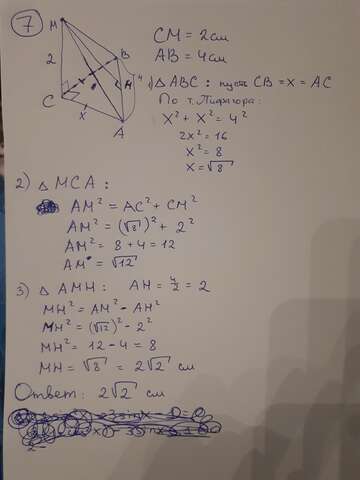 7
M
2
C
x
B
4
H
A
CM = 2см
AB = 4см
1) △ABC: пусть CB = x = AC
По т. Пифагора:
x² + x² = 4²
2x² = 16
x² = 8
x = √8
2) △ MCA:
AM² = AC² + CM²
AM² = (√8)² + 2²
AM² = 8 + 4 = 12
AM = √12
3) △ AMH: AH = 4/2 = 2
MH² = AM² - AH²
MH² = (√12)² - 2²
MH² = 12 - 4 = 8
MH = √8 = 2√2 см
Ответ: 2√2 см